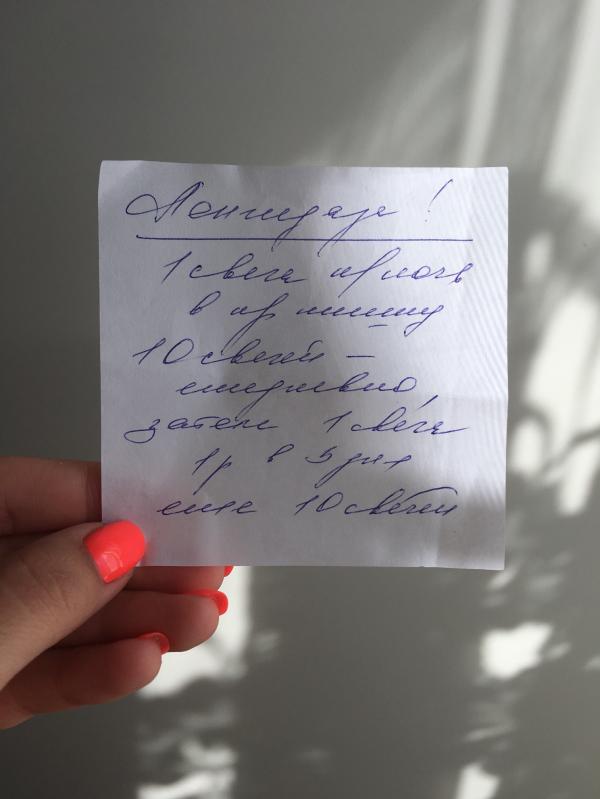 Лонгидаза!
1 свеча на ночь
в пр
10 свечей –
ежедневно,
затем 1 свеча
1р в 5 дня
еще 10 свечей